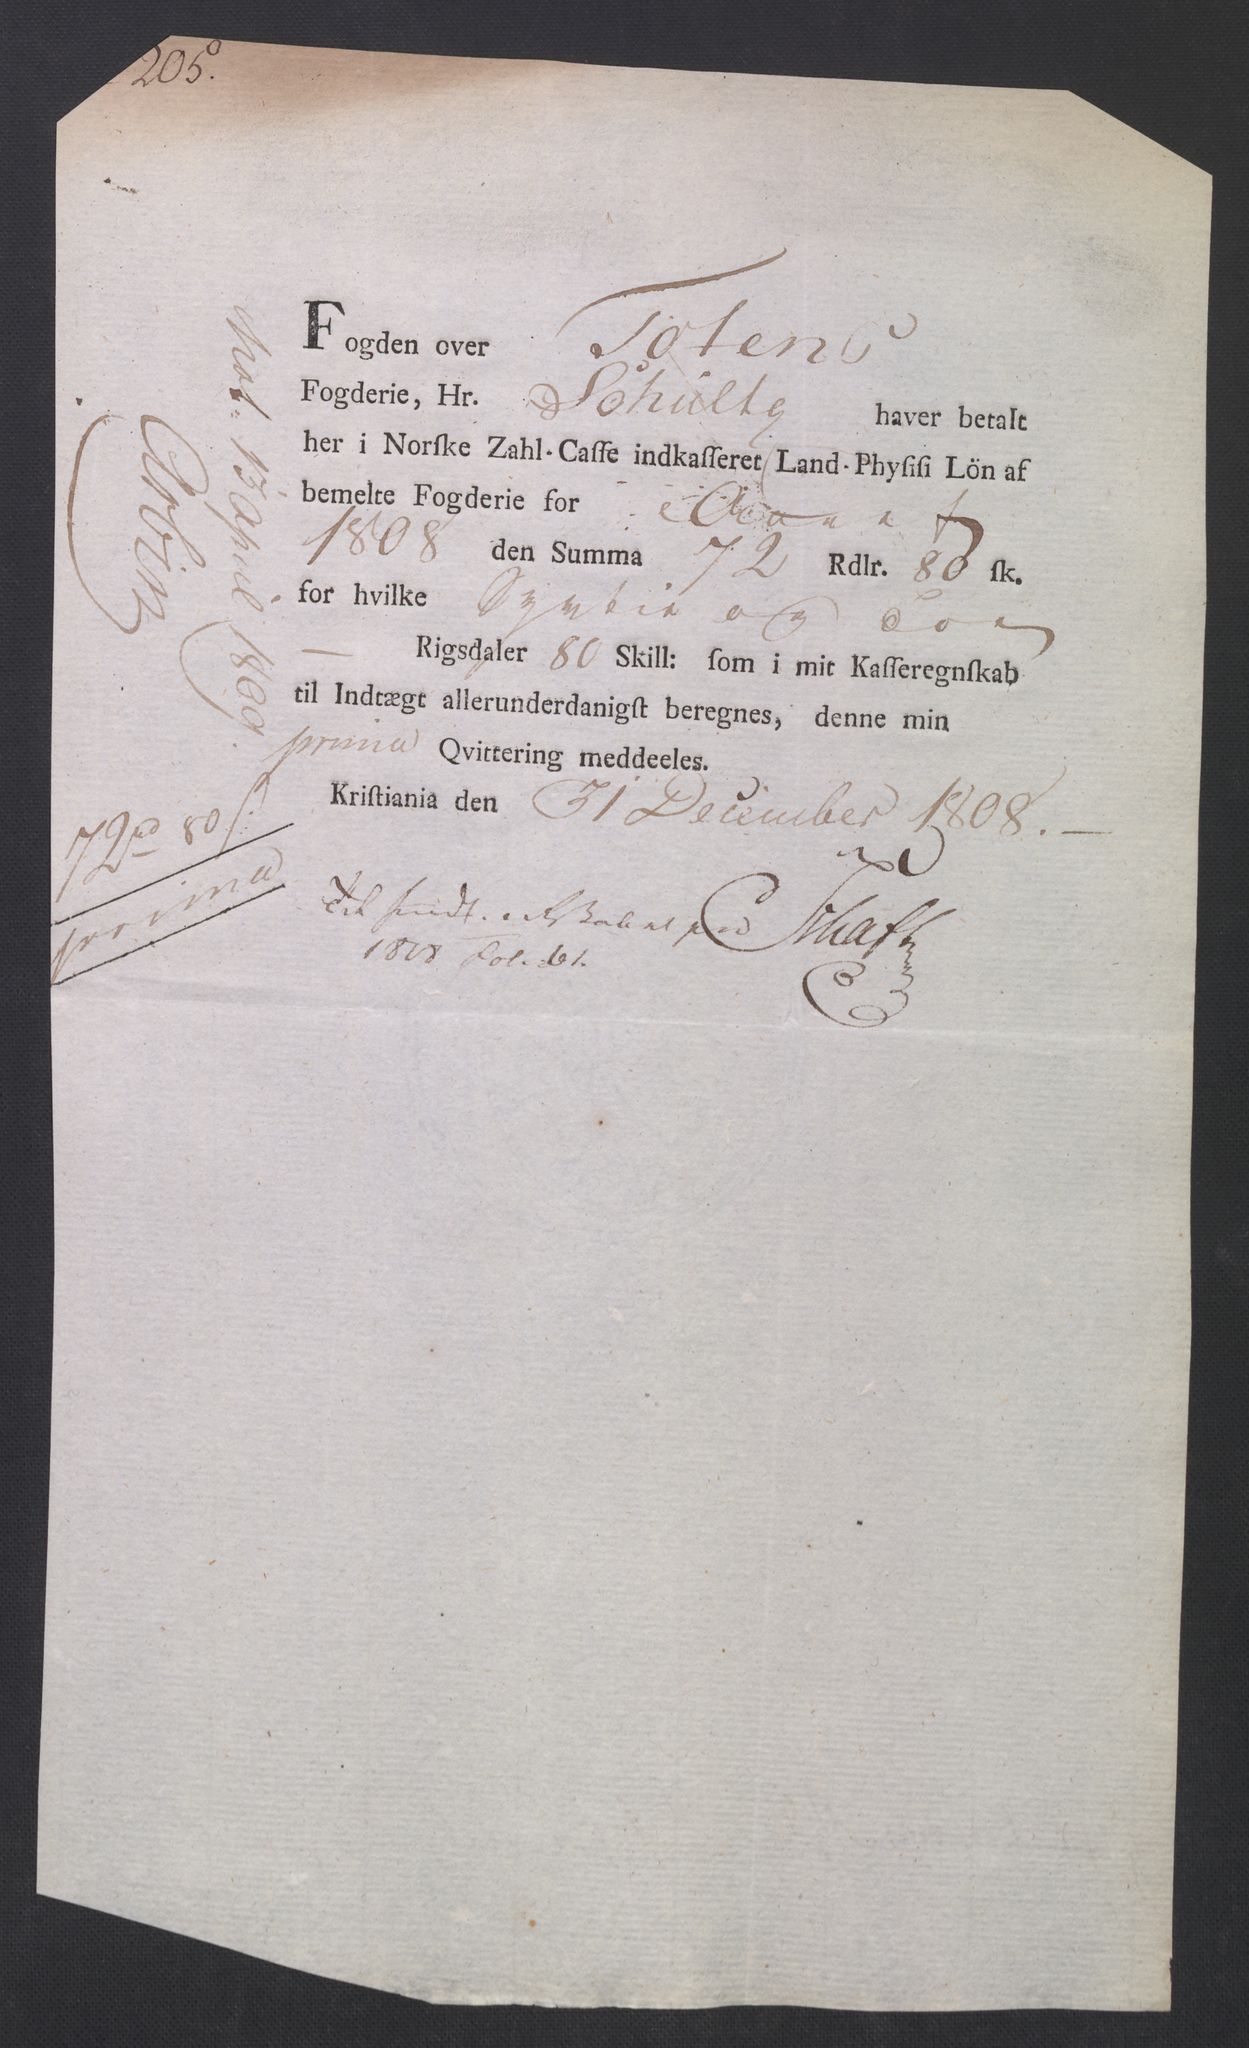 205.
Fogden over Totens
Fogderie, Hr. Schultz haver betalt
her i Norſke Zahl-Caſſe indkaſſeret Land-Phyſiſi Lön af
bemelte Fogderie for Aaret
1808 den Summa 72 Rdlr. 80 ſk.
for hvilke Sÿvtie og Toe
— Rigsdaler 80 Skill: ſom i mit Kaſſeregnſkab
til Indtægt allerunderdanigſt beregnes, denne min
prima Qvittering meddeeles.
Kriſtiania den 31 December 1808. —
1808 Fol. 61.
Not. 13 April 1809.
72 rd 80 ſ.
prima